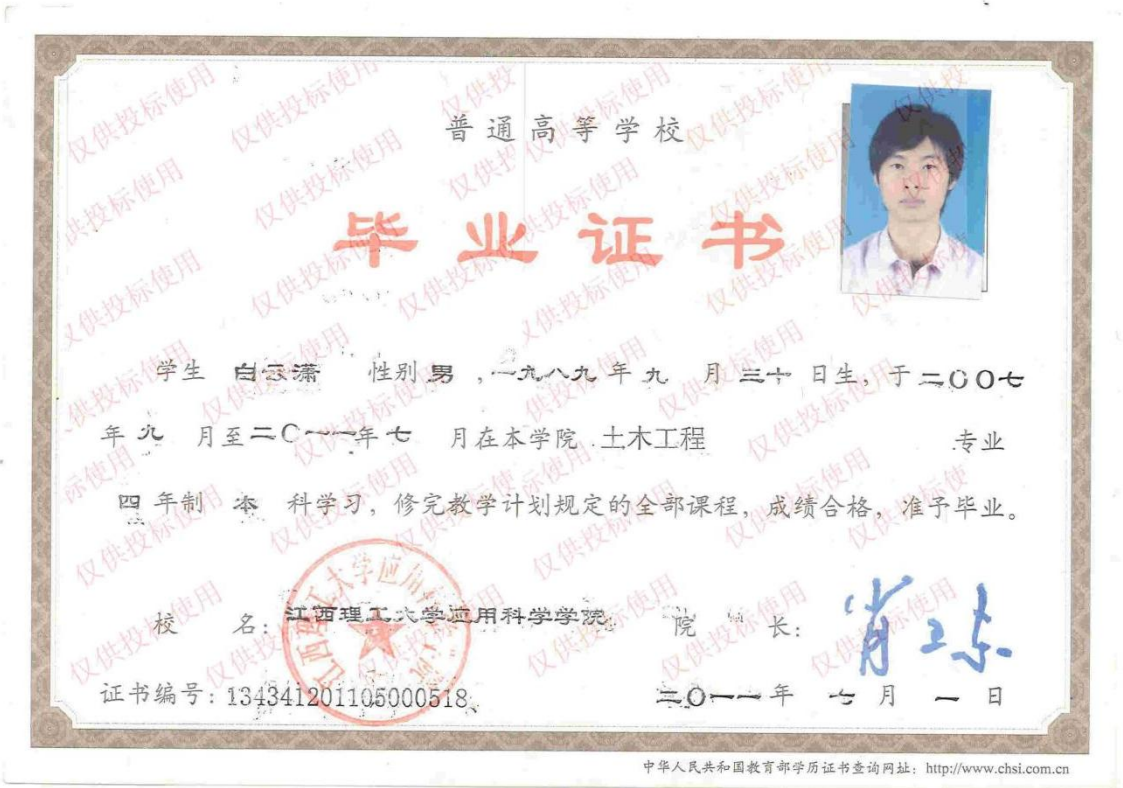 普通高等学校
毕业证书
学生 白云潇 性别 男 ,一九八九年 九 月 三十 日生,于二〇〇七
年 九 月至二〇一一年 七 月在本学院 土木工程 专业
四 年制 本 科学习,修完教学计划规定的全部课程,成绩合格,准予毕业。
校 名:江西理工大学应用科学学院 院 长:
证书编号:134341201105000518 二〇一一年 七 月 一 日
中华人民共和国教育部学历证书查询网址:http://www.chsi.com.cn
仅供投标使用
江西理工大学应用科学学院